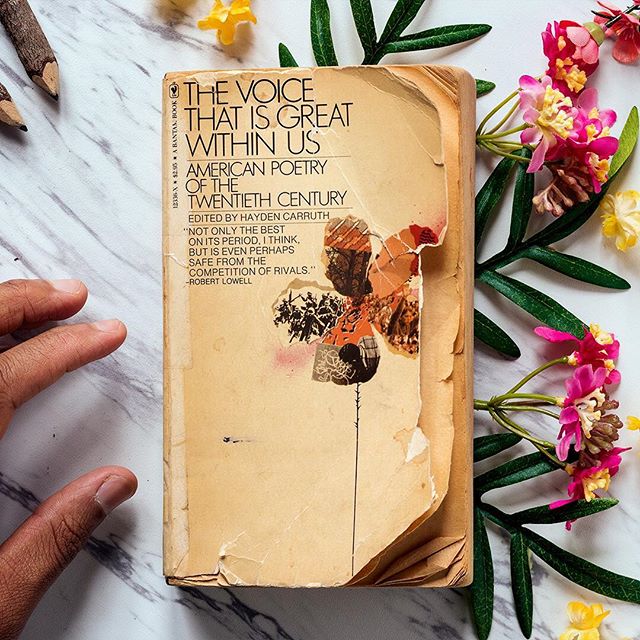 THE VOICE
THAT IS GREAT
WITHIN US
AMERICAN POETRY
OF THE
TWENTIETH CENTURY
EDITED BY HAYDEN CARRUTH
"NOT ONLY THE BEST
ON ITS PERIOD, I THINK,
BUT IS EVEN PERHAPS
SAFE FROM THE
COMPETITION OF RIVALS."
-ROBERT LOWELL
12536-X ★ $2.95 ★ A BANTAM BOOK